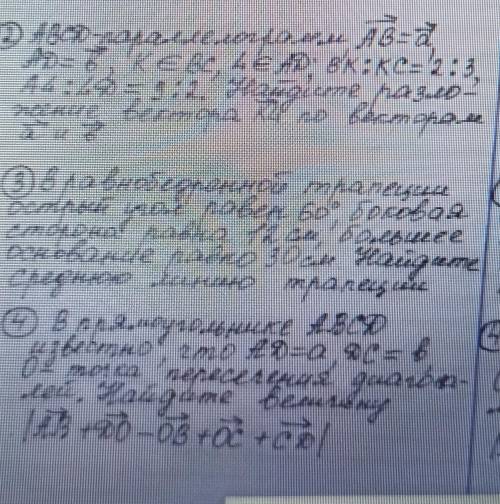 ② ABCD-параллелограмм, AB=a,
AD=b, K∈BC, L∈AD, BK:KC=2:3,
AL:LD=3:2. Найдите разло-
жение вектора KL по векторам
a и b
③ В равнобедренной трапеции
острый угол равен 60°, боковая
сторона равна 12 см, большее
основание равно 30 см. Найдите
среднюю линию трапеции
④ В прямоугольнике ABCD
известно, что AD=a, DC=b
O- точка пересечения диагона-
лей. Найдите величину
|AB+DO-OB+OC+CD|